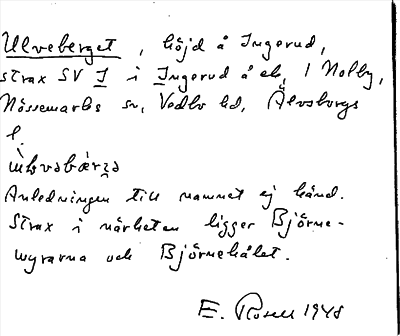 Ulveberget, höjd å Ingerud,
strax SV I i Ingerud å ek, 1 Nolby,
Nössemarks sn, Vedbo hd, Älvsborgs
l.
Anledningen till namnet ej känd.
Strax i närheten ligger Björne-
myrarna och Björnehålet.
E. Rosell 1948